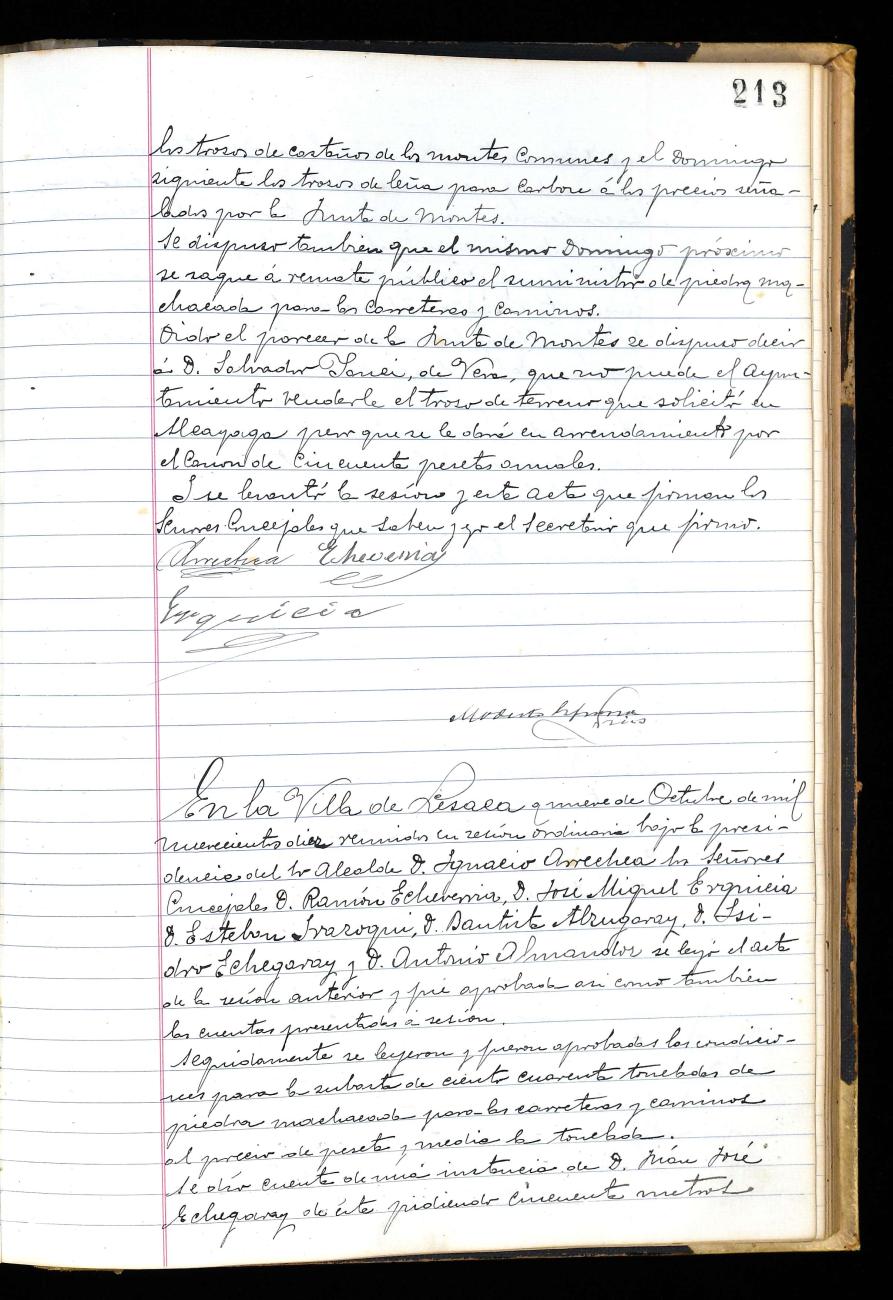 213
los trosos de castaños de los montes Comunes y el Domingo
siguiente los trosos de leña para Carbon á los precios seña-
lados por la Junta de Montes.
Se dispuso tambien que el mismo Domingo próximo
se saque á remate público el suministro de piedra ma-
chacada para las Carreteras y Caminos.
Oido el parecer de la Junta de Montes se dispuso decir
á D. Salvador, de Vera, que no puede el Ayun-
tamiento venderle el troso de terreno que solicitó en
Alcayaga pero que se le dará en arrendamiento por
el Canon de Cincuenta pesetas anuales.
I se levantó la sesión y esta acta que firman los
Señores Concejales que saben y yo el Secretario que firmo.
Arrechea Echeverria
Erquicia
En la Villa de Lesaca a nueve de Octubre de mil
nuevecientos diez reunidos en sesión ordinaria bajo la presi-
dencia del Sr Alcalde D. Ignacio Arrechea los Señores
Concejales D. Ramón Echeverria, D. José Miguel Erquicia
D. Esteban Irazoqui, D. Bautista Alzugaray, D. Isi-
dro Echegaray y D. Antonio Almandoz se leyó el acta
de la sesión anterior y fué aprobada asi como tambien
las cuentas presentadas á sesión.
Seguidamente se leyeron y fueron aprobadas las condicio-
nes para la subasta de ciento cuarenta toneladas de
piedra machacada para las carreteras y caminos
al precio de peseta y media la tonelada.
Se dío cuenta de una instancia de D. Juán José
Echegaray de ésta pidiendo cincuenta metros